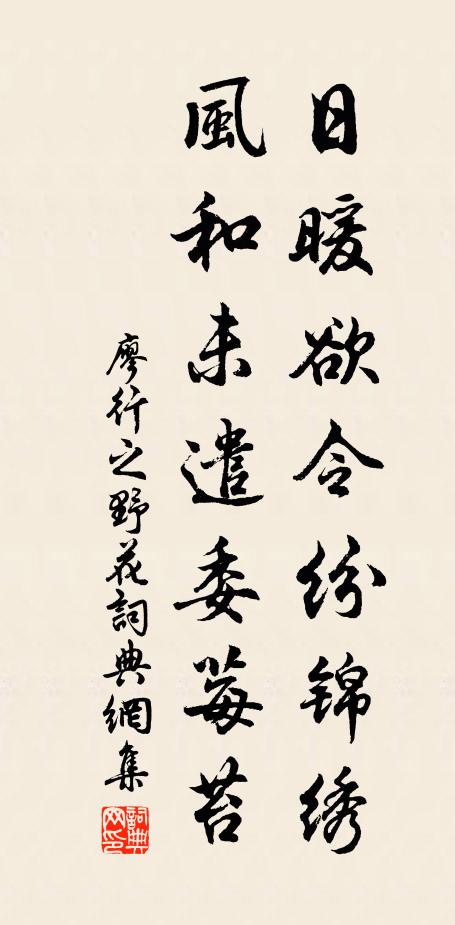 日暖欲令纷锦绣
風和未遣委莓苔
廖行之野花詞典網集
詞典網印